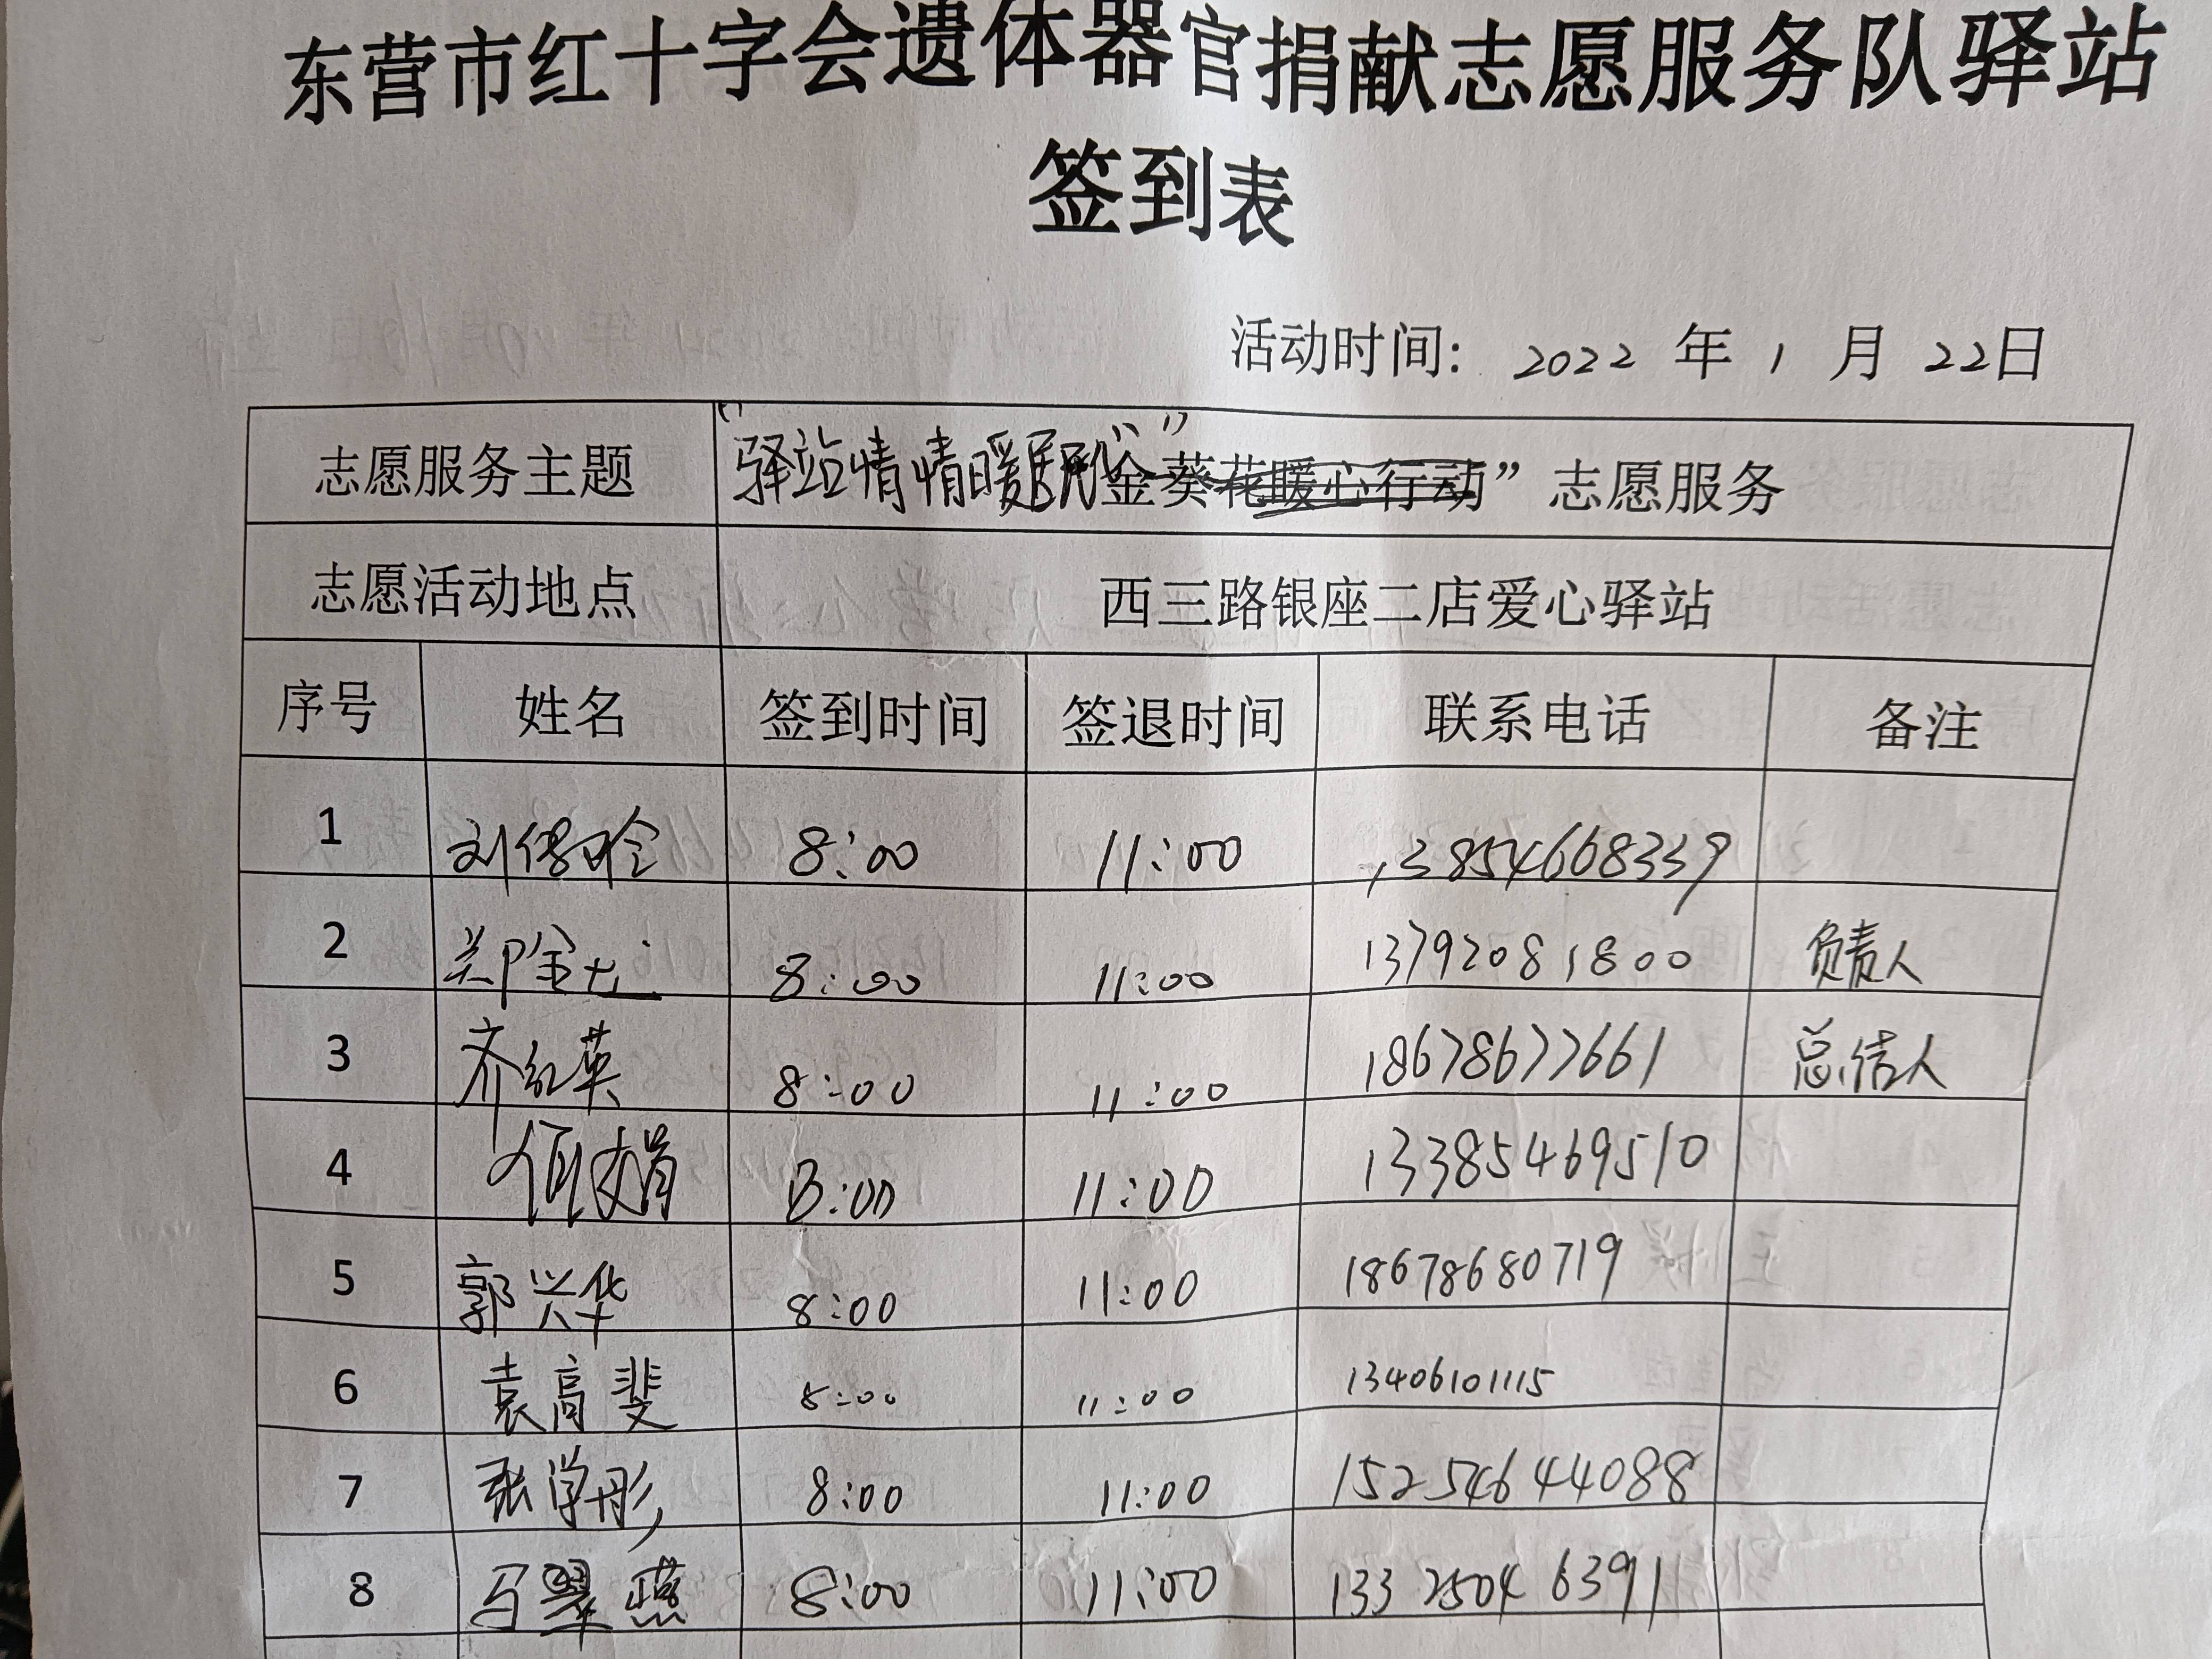 东营市红十字会遗体器官捐献志愿服务队驿站
签到表
活动时间: 2022 年 1 月 22日
志愿服务主题 "驿站情 情暖 金葵花暖心行动” 志愿服务
志愿活动地点 西三路银座二店爱心驿站
序号 姓名 签到时间 签退时间 联系电话 备注
1 刘 8:00 11:00 13854668339
2 郑 8:00 11:00 13792081800 负责人
3 齐红英 8:00 11:00 18678677661 总结人
4 8:00 11:00 13385469510
5 郭兴华 8:00 11:00 18678680719
6 袁高斐 8:00 11:00 13406101115
7 张学彤 8:00 11:00 15254644088
8 马翠燕 8:00 11:00 13325046391